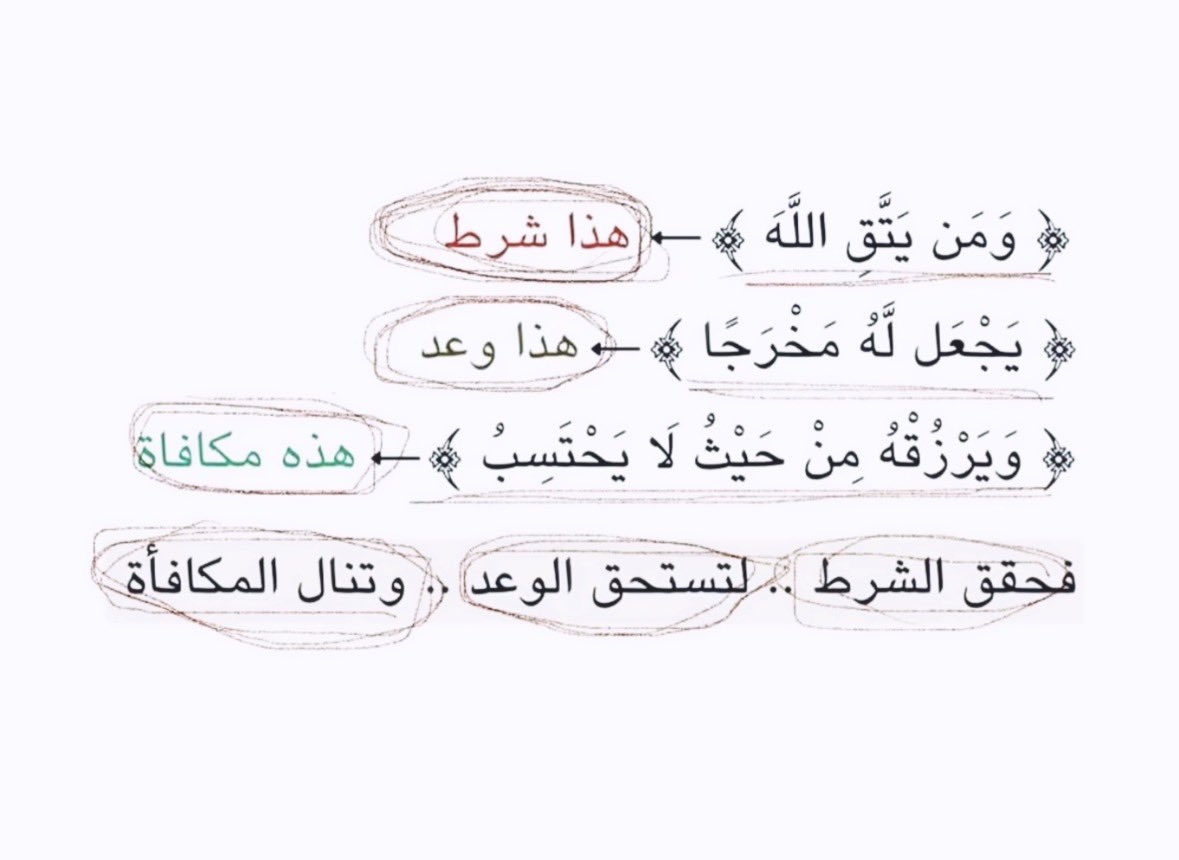 ﴿ وَمَن يَتَّقِ اللَّهَ ﴾ ← هذا شرط
﴿ يَجْعَل لَّهُ مَخْرَجًا ﴾ ← هذا وعد
﴿ وَيَرْزُقْهُ مِنْ حَيْثُ لَا يَحْتَسِبُ ﴾ ← هذه مكافاة
فحقق الشرط .. لتستحق الوعد .. وتنال المكافأة